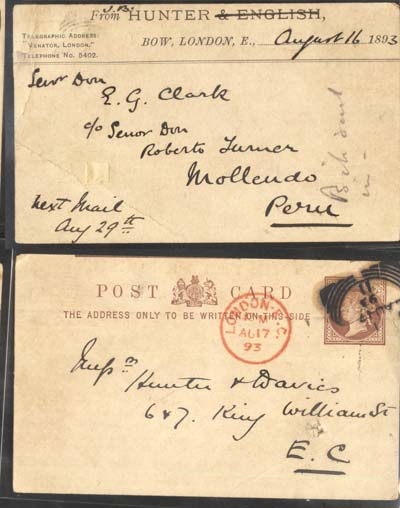 From J.B. HUNTER & ENGLISH,
TELEGRAPHIC ADDRESS:
"VENATOR, LONDON."
TELEPHONE No. 5402.
BOW, LONDON, E., August 16 1893
Senor Don
E. G. Clark
c/o Senor Don
Roberto Turner
Mollendo
Peru
next Mail
Aug 29th
POST CARD
THE ADDRESS ONLY TO BE WRITTEN ON THIS SIDE
LONDON. E.C.
AU 17
93
Messrs
Hunter & Davies
6 & 7. King William St
E. C